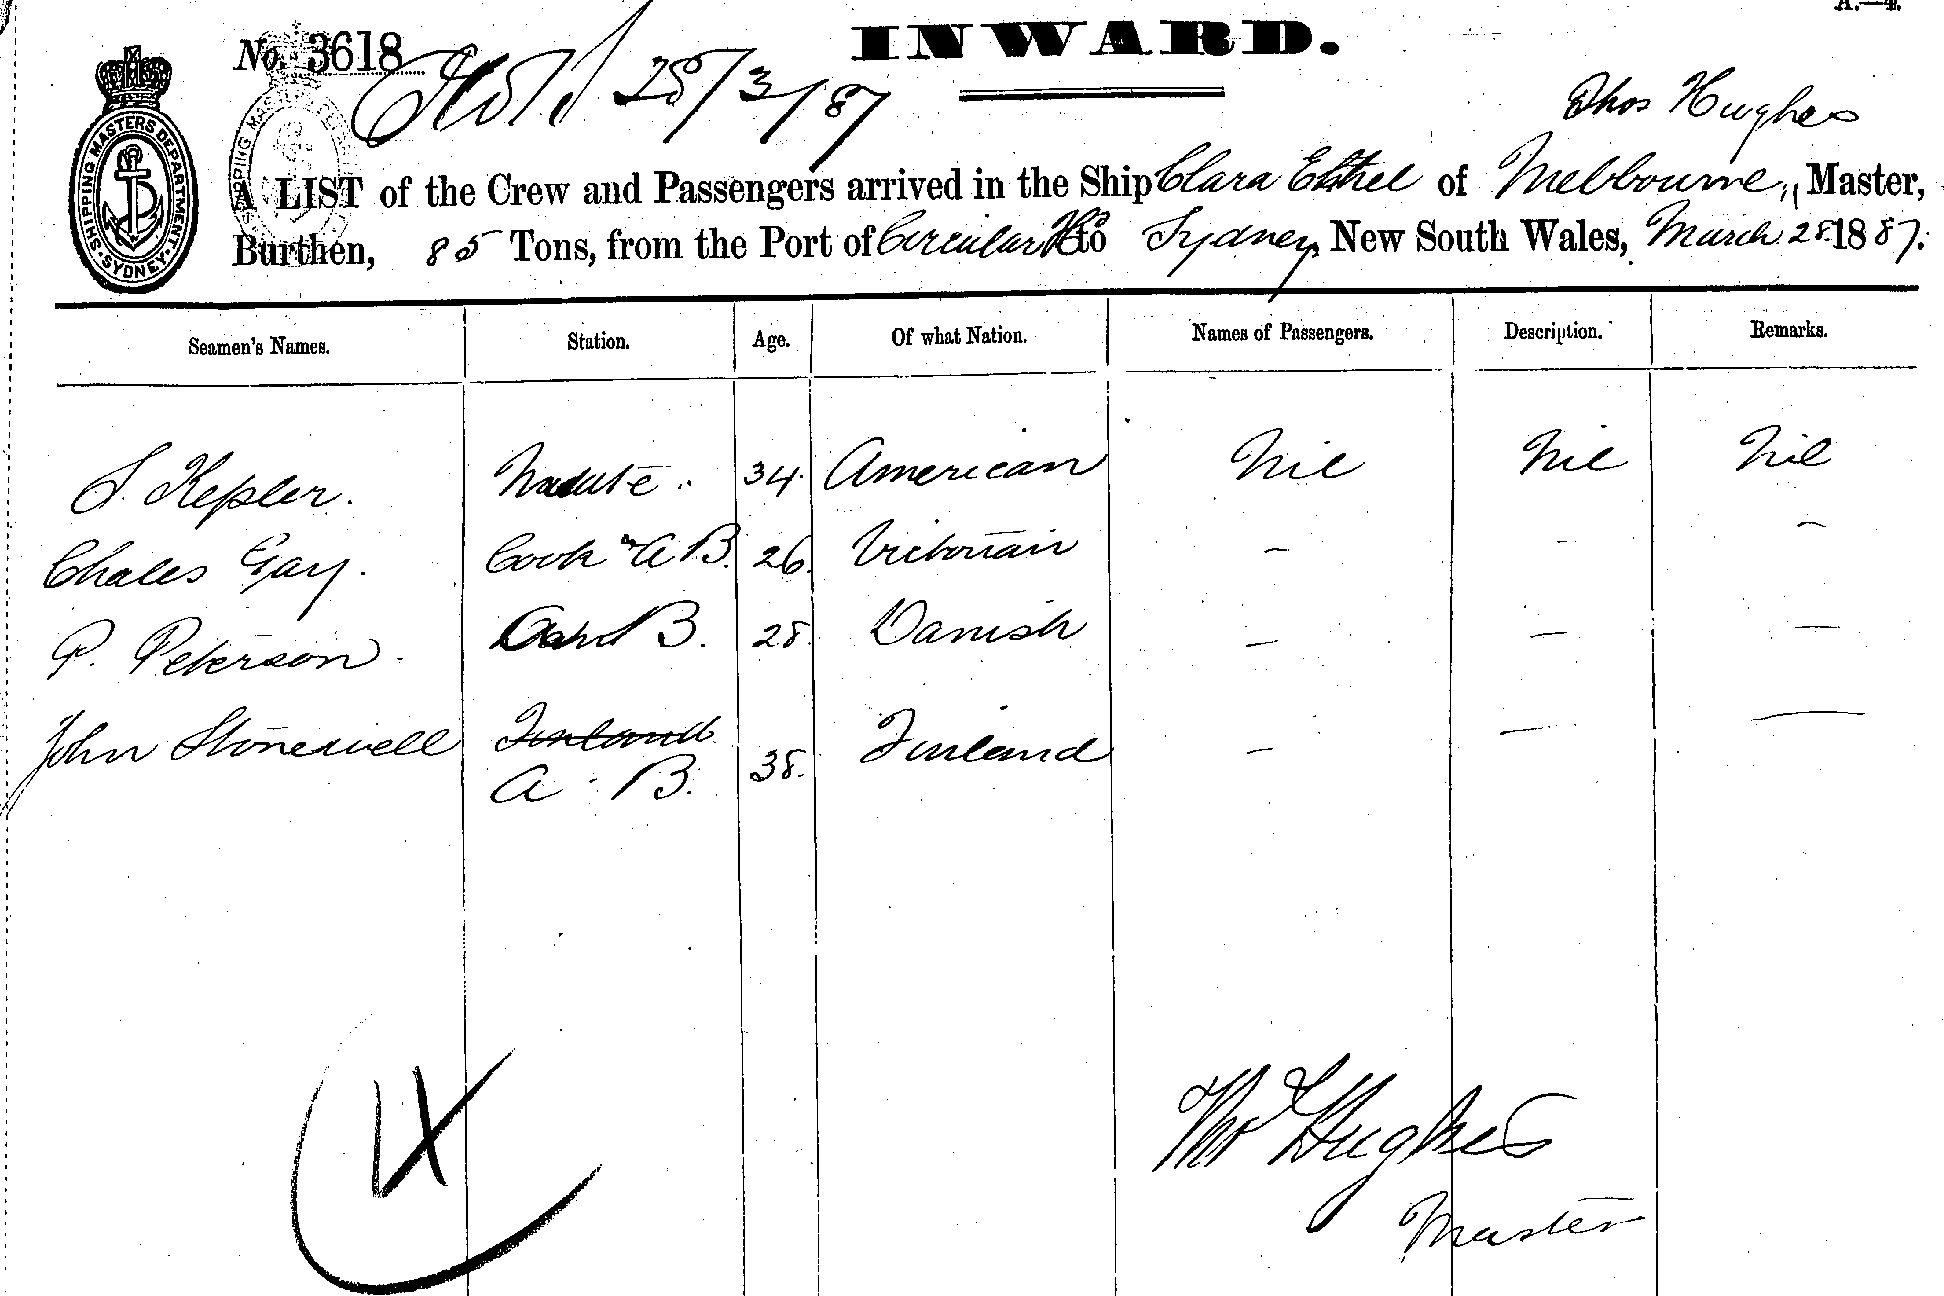 A.—4.
No. 3618
INWARD.
28/3/87
Thos Hughes
SHIPPING MASTERS DEPARTMENT. SYDNEY
A LIST of the Crew and Passengers arrived in the Ship Clara Ethel of Melbourne, Master,
Burthen, 85 Tons, from the Port of Circular Hd to Sydney, New South Wales, March 28 1887.
Seamen's Names. Station. Age. Of what Nation. Names of Passengers. Description. Remarks.
S. Kepler. Mate. 34. American Nil Nil Nil
Chales Gay. Cook & A B. 26. Victorian — — —
P. Peterson. B. 28. Danish — — —
John Stonewell Finland 38. Finland — — —
A. B.
4
Thos Hughes
Master